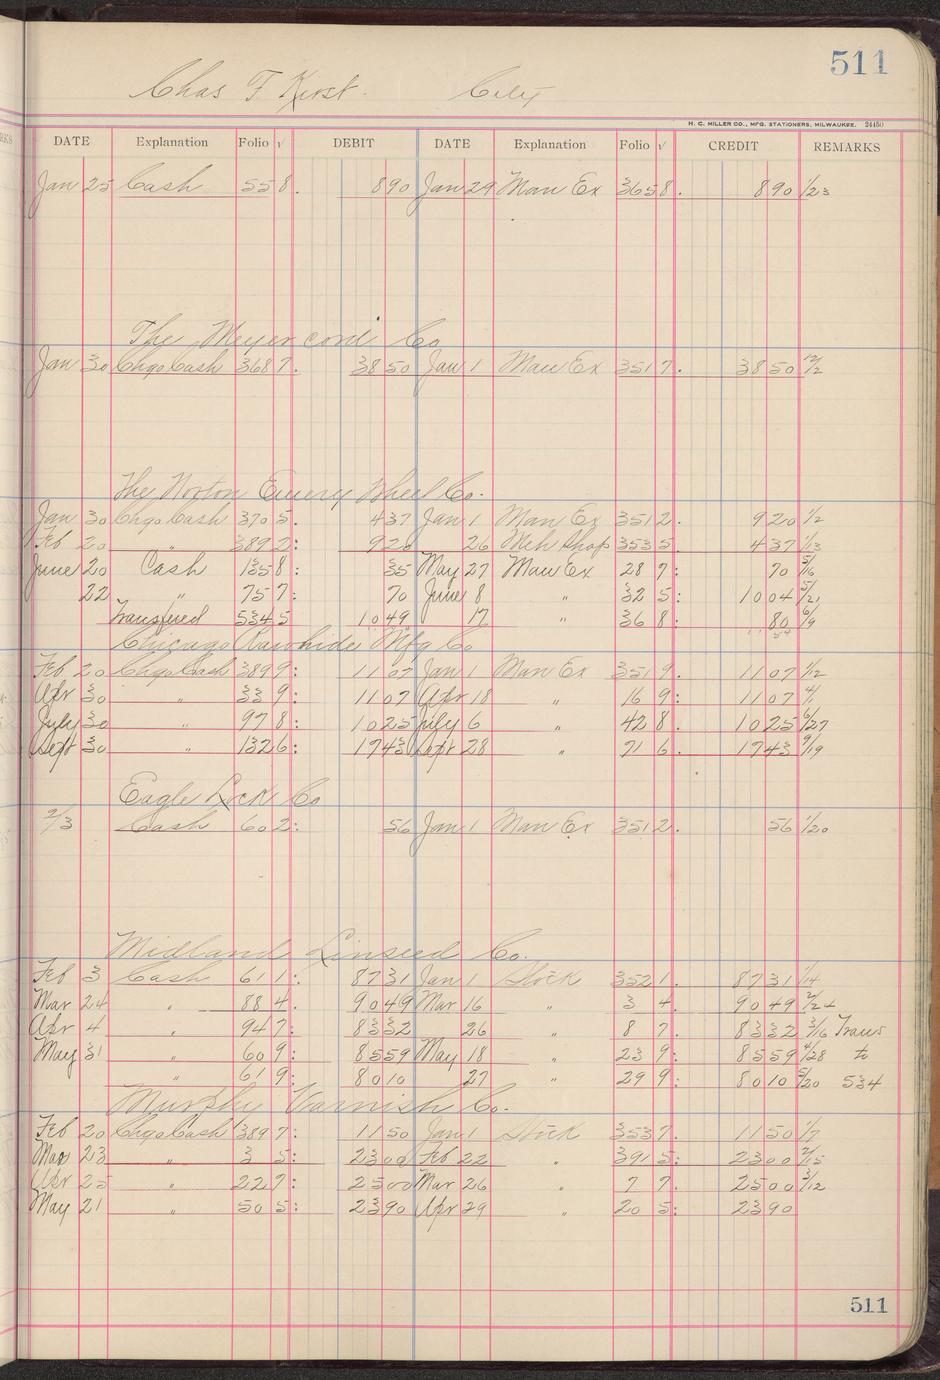 511
Chas F Kirst. City
H. C. MILLER CO., MFG. STATIONERS, MILWAUKEE. 24450
DATE Explanation Folio √ DEBIT DATE Explanation Folio √ CREDIT REMARKS
Jan 25 Cash 558. 890 Jan 29 Man Ex 3658. 890 1/23
The Meyercord Co
Jan 30 Chgo Cash 3687. 3850 Jan 1 Man Ex 3517. 3850 12/2
The Norton Emery Wheel Co.
Jan 30 Chgo Cash 3705. 437 Jan 1 Man Ex 3512. 920 1/2
Feb 20 " 3892: 920 26 Mch Shop 3535. 437 1/13
June 20 Cash 1358: 35 May 27 Man Ex 287: 70 5/16
22 " 757: 70 June 8 " 325: 1004 5/21
Transfered 5345 1049 17 " 368: 80 6/9
54
Chicago Rawhide Mfg Co
Feb 20 Chgo Cash 3899: 1107 Jan 1 Man Ex 3519. 1107 1/12
Apr 30 " 339: 1107 Apr 18 " 169: 1107 4/1
July 30 " 978: 1025 July 6 " 428. 1025 6/27
Sept 30 " 1326: 1743 Sept 28 " 716. 1743 9/19
Eagle Lock Co
2/3 Cash 602: 56 Jan 1 Man Ex 3512. 56 1/20
Midland Linseed Co.
Feb 3 Cash 611: 8731 Jan 1 Stock 3521. 8731 1/14
Mar 24 " 884. 9049 Mar 16 " 34. 9049 2/24
Apr 4 " 947: 8332 26 " 87. 8332 3/16 Trans
May 31 " 609: 8559 May 18 " 239: 8559 4/28 to
" 619: 8010 27 " 299: 8010 5/20 534
Murphy Varnish Co.
Feb 20 Chgo Cash 3897: 1150 Jan 1 Stock 3537. 1150 1/7
Mar 23 " 35: 2300 Feb 22 " 3915: 2300 2/15
Apr 25 " 227: 2500 Mar 26 " 77. 2500 3/12
May 21 " 505: 2390 Apr 29 " 205: 2390
511